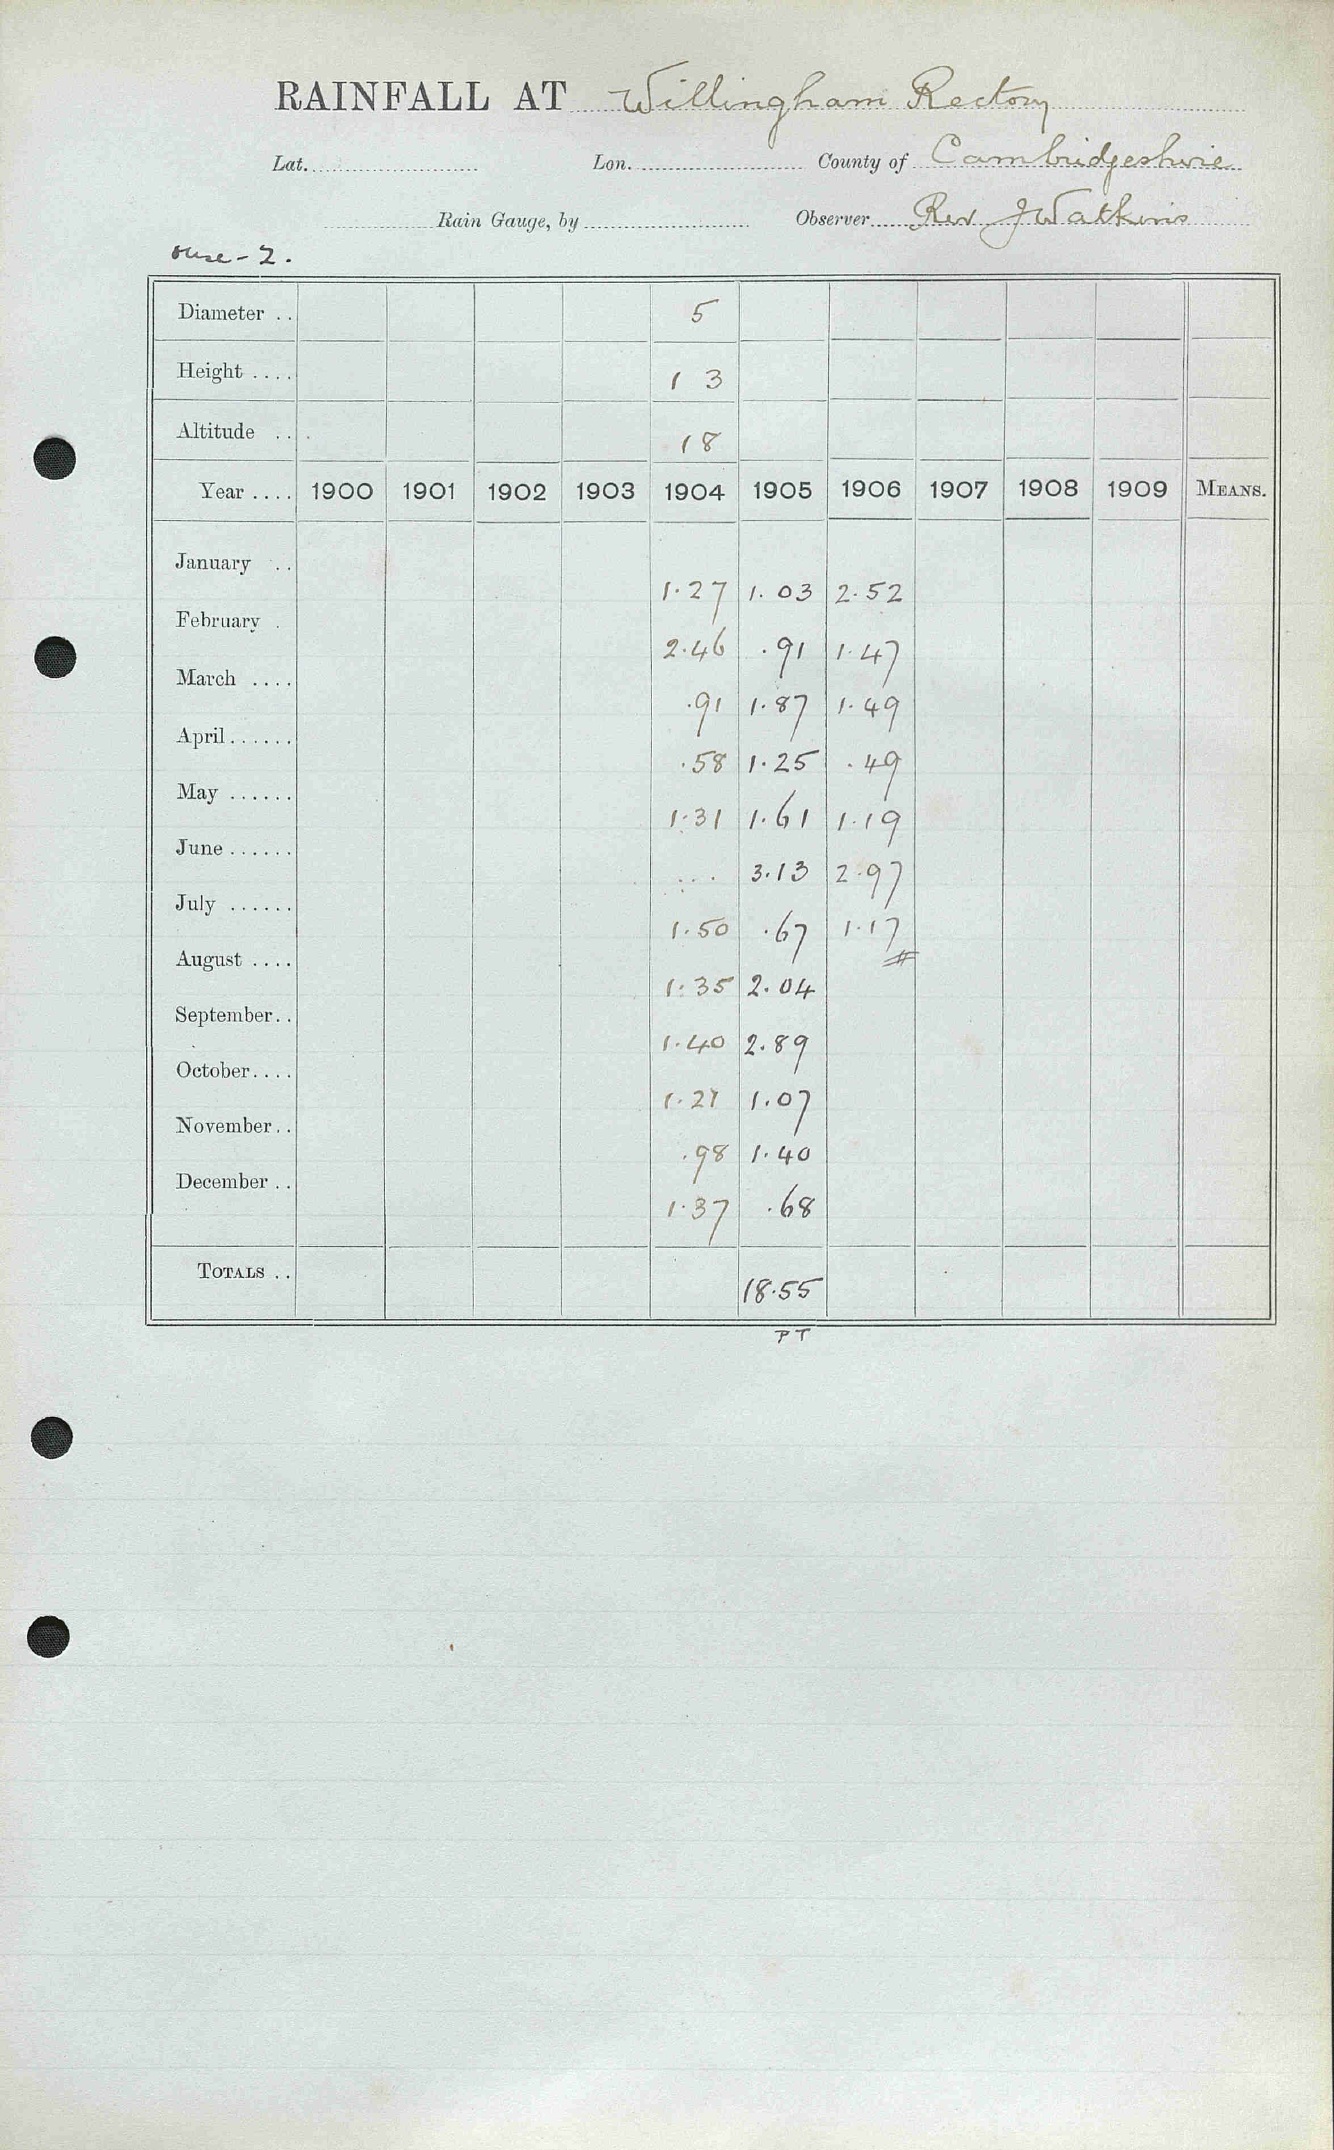 RAINFALL AT Willingham Rectory
Lat. Lon. County of Cambridgeshire
Rain Gauge, by Observer Rev J Watkins
Ouse - 2.
Diameter . . 5
Height . . . . 1 3
Altitude . . 18
Year . . . . 1900 1901 1902 1903 1904 1905 1906 1907 1908 1909 MEANS.
January . . 1.27 1.03 2.52
February . 2.46 .91 1.47
March . . . . .91 1.87 1.49
April . . . . . . .58 1.25 .49
May . . . . . . 1.31 1.61 1.19
June . . . . . . ... 3.13 2.97
July . . . . . . 1.50 .67 1.17
August . . . . 1.35 2.04
September. . 1.40 2.89
October. . . . 1.07
November. . .98 1.40
December . . 1.37 .68
TOTALS . . 18.55
PT